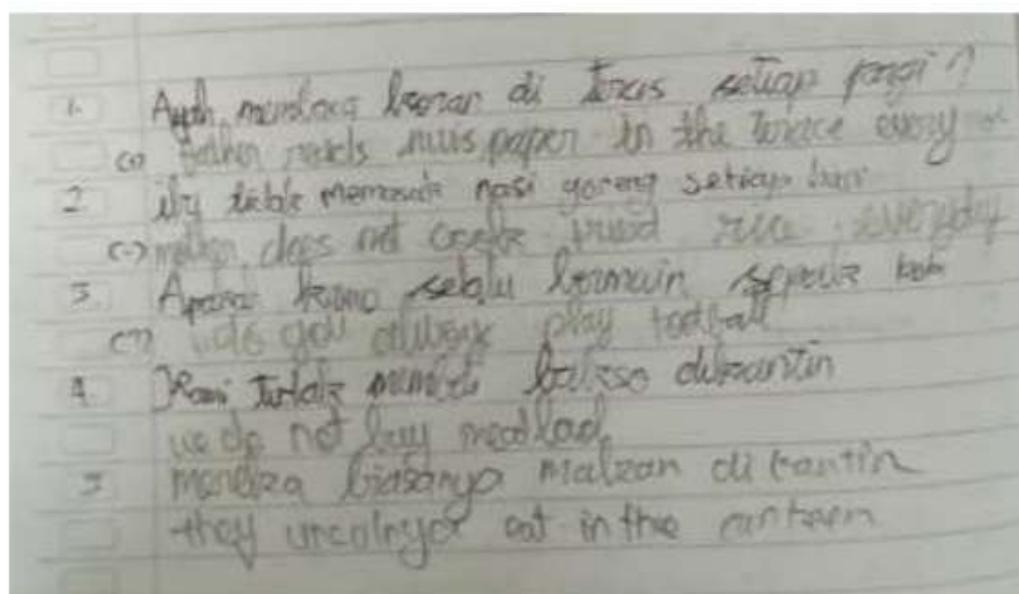 1. Ayah membaca koran di teras setiap pagi
(+) Father reads nuws paper in the terace every
2 ibu tidak memasak nasi goreng setiap hari
(-) mother does not cooke fried rice everyday
3. Apakah kamu selalu bermain sepak bola
(?) do you always play football
4 Kami tidak membeli bakso dikantin
we do not buy meatball
5 mereka biasanya makan di kantin
they eat in the canteen